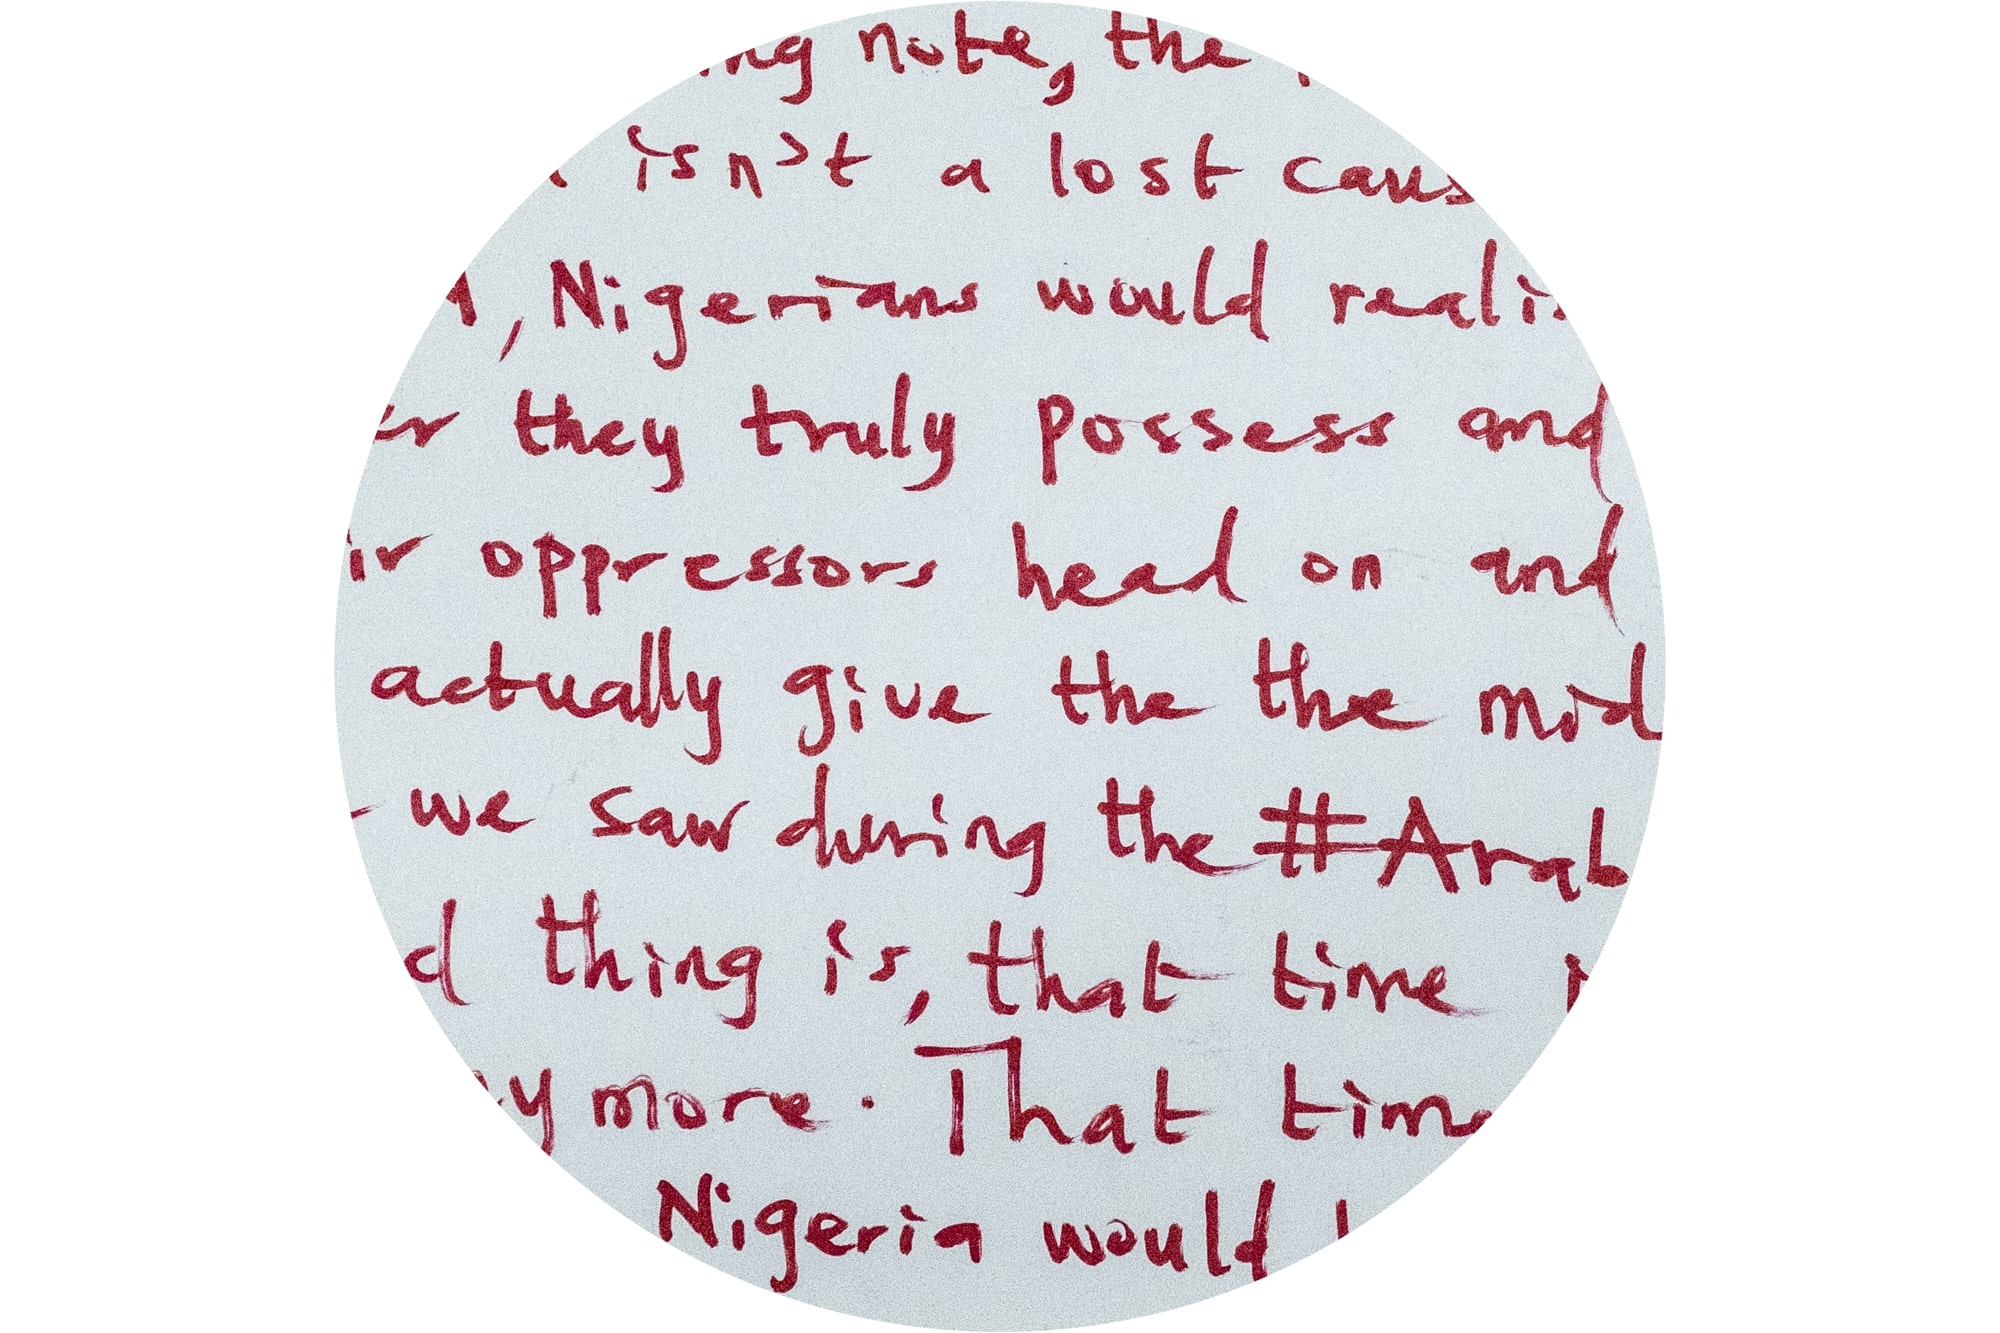 note, the
isn't a lost
, Nigerians would
they truly possess and
oppressors head on and
actually give the the mid
we saw during the #Arab
thing is, that time
more. That time
Nigeria would